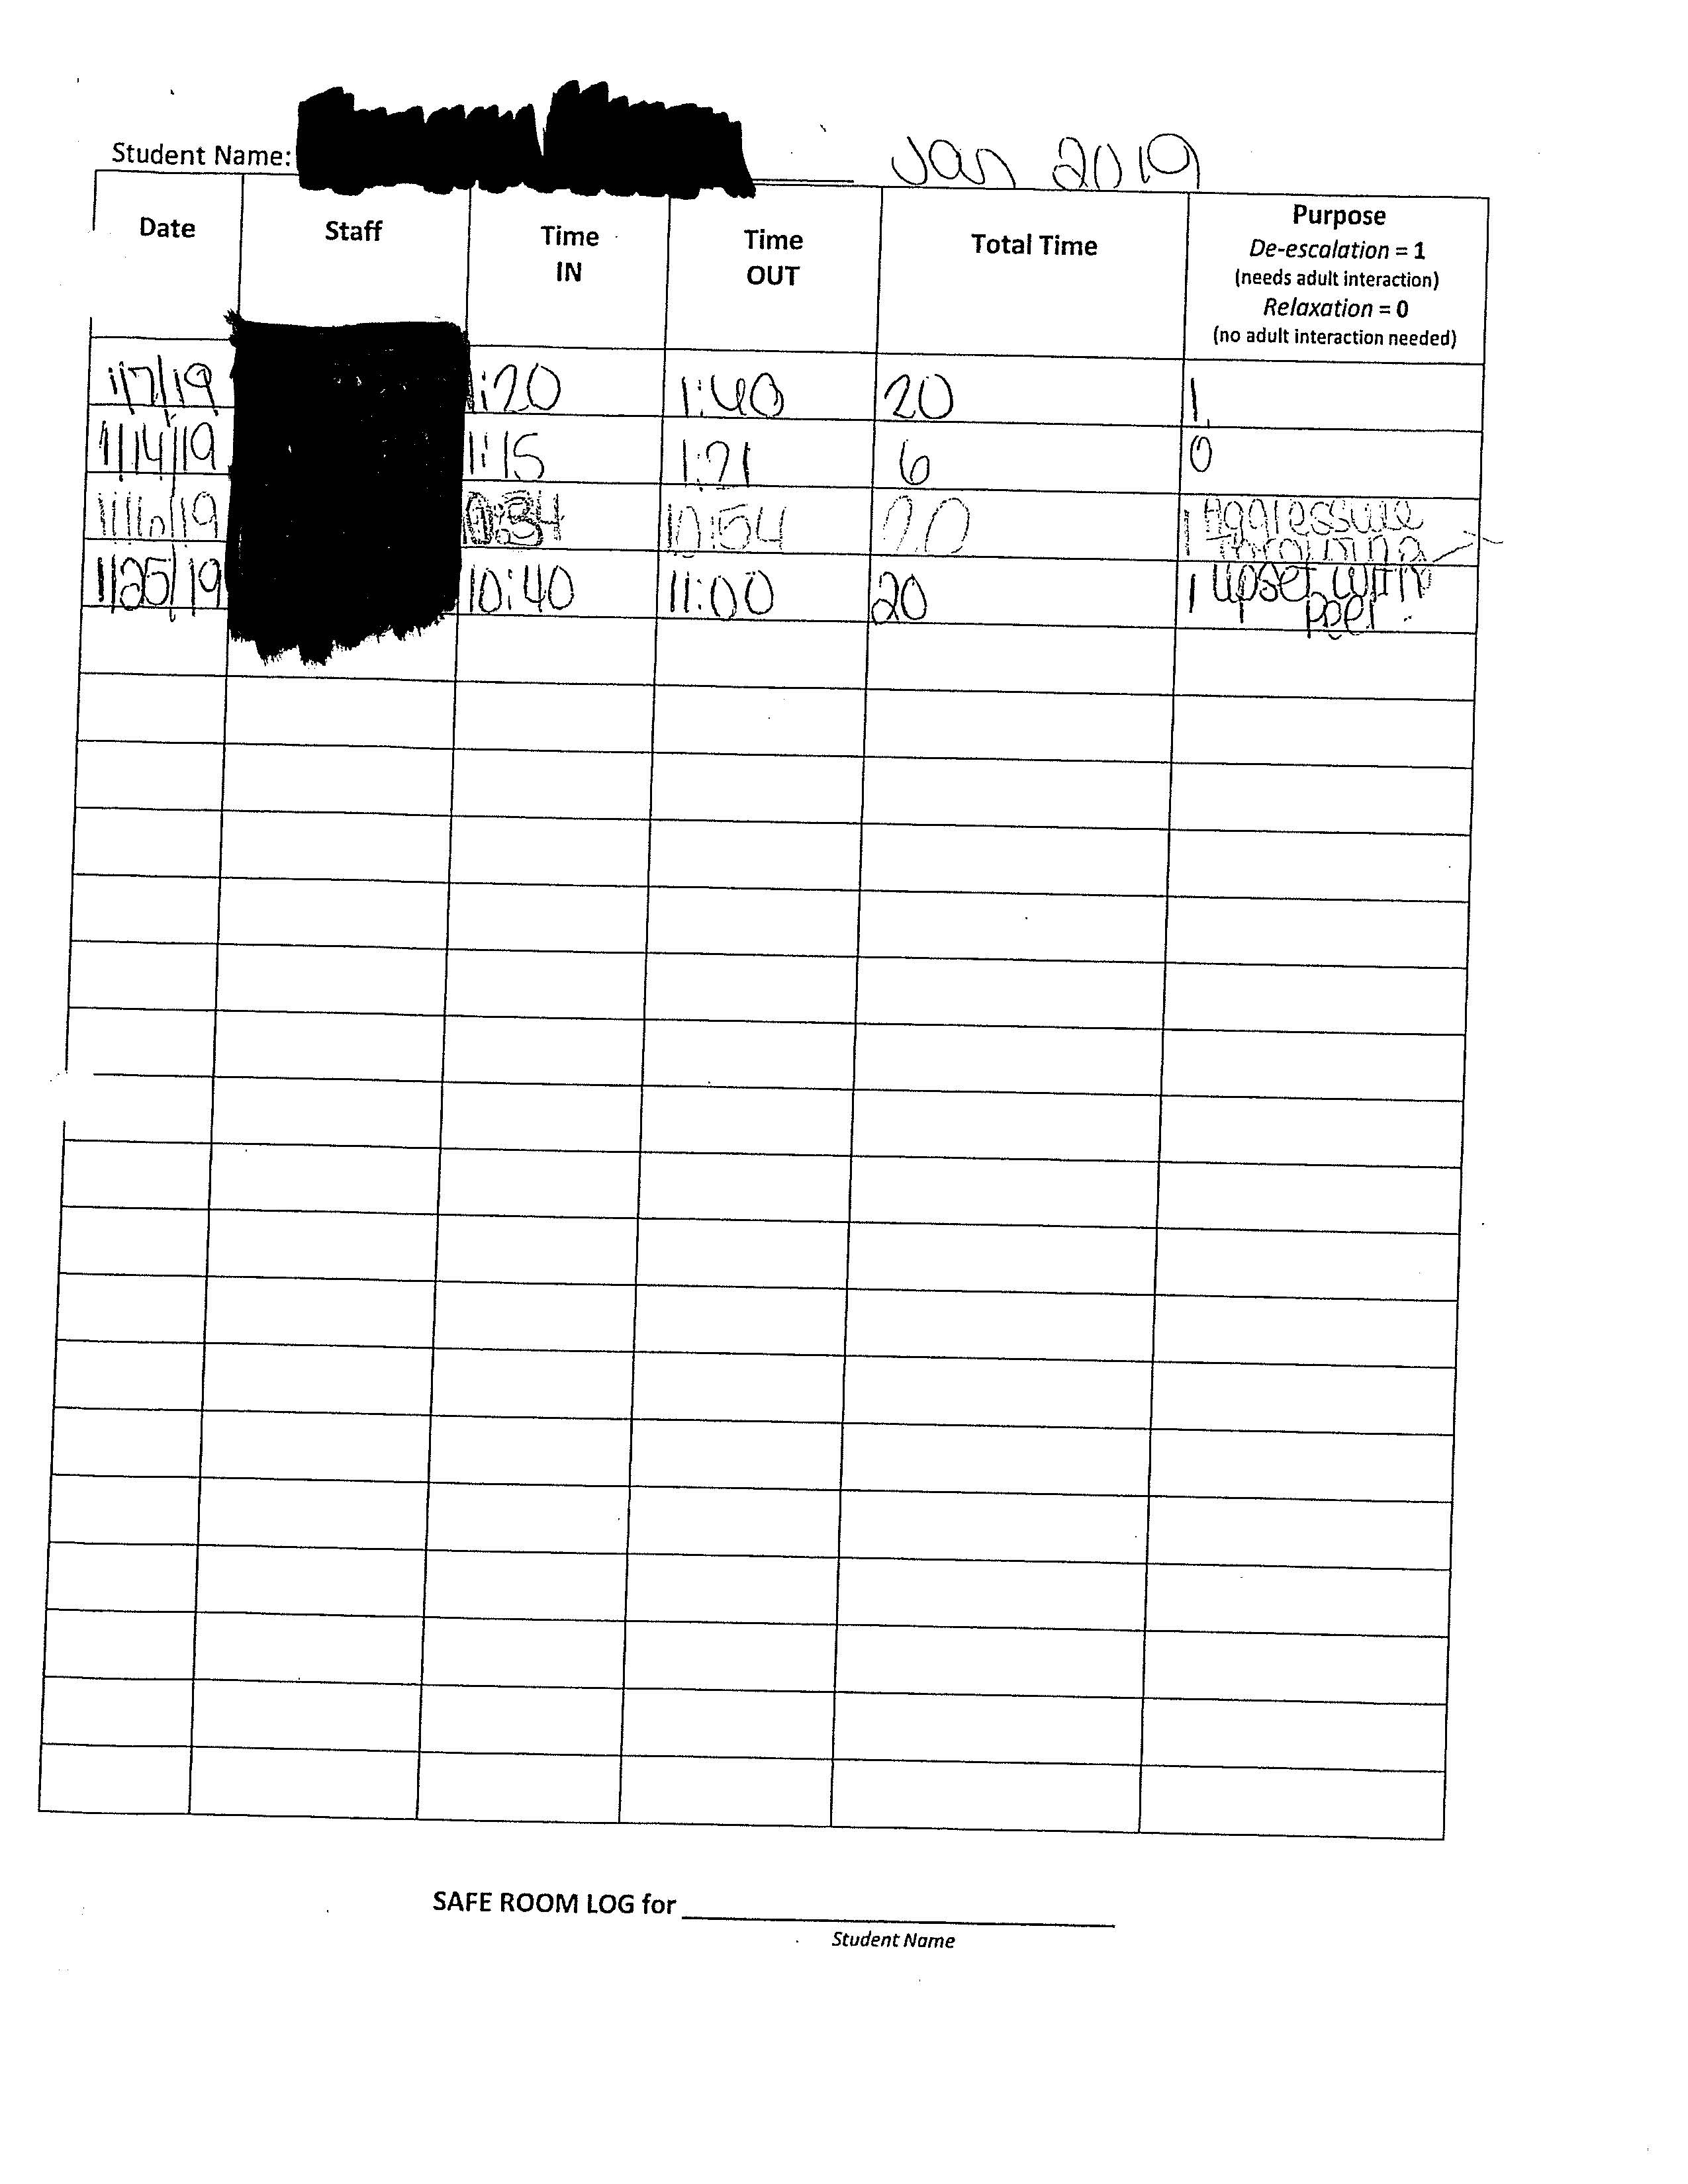 Student Name: Jan 2019
Date Staff Time IN Time OUT Total Time Purpose
De-escalation = 1
(needs adult interaction)
Relaxation = 0
(no adult interaction needed)
1/7/19 1:20 1:40 20 1
1/14/19 1:15 1:21 6 0
1/16/19 10:34 10:54 20 1 Aggressive
1/25/19 10:40 11:00 20 1 upset with
peer
SAFE ROOM LOG for
Student Name